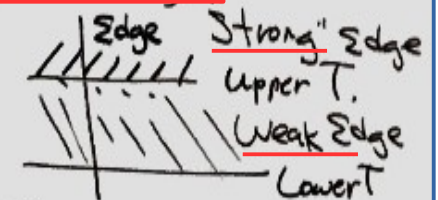 Edge
"Strong" Edge
Upper T.
Weak Edge
Lower T